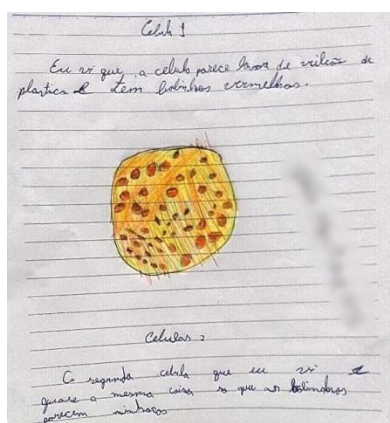 Celula 1
Eu vi que a celula parece lona de vilão de
plastica e tem bolinhas vermelhas.
Celulas 2
A segunda celula que eu vi é
quase a mesma coisa so que as bolinhas
parecem